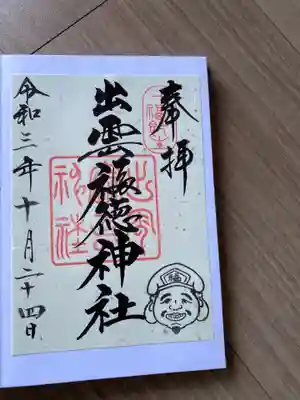 奉拝
出雲福徳神社
令和三年十月二十四日
福